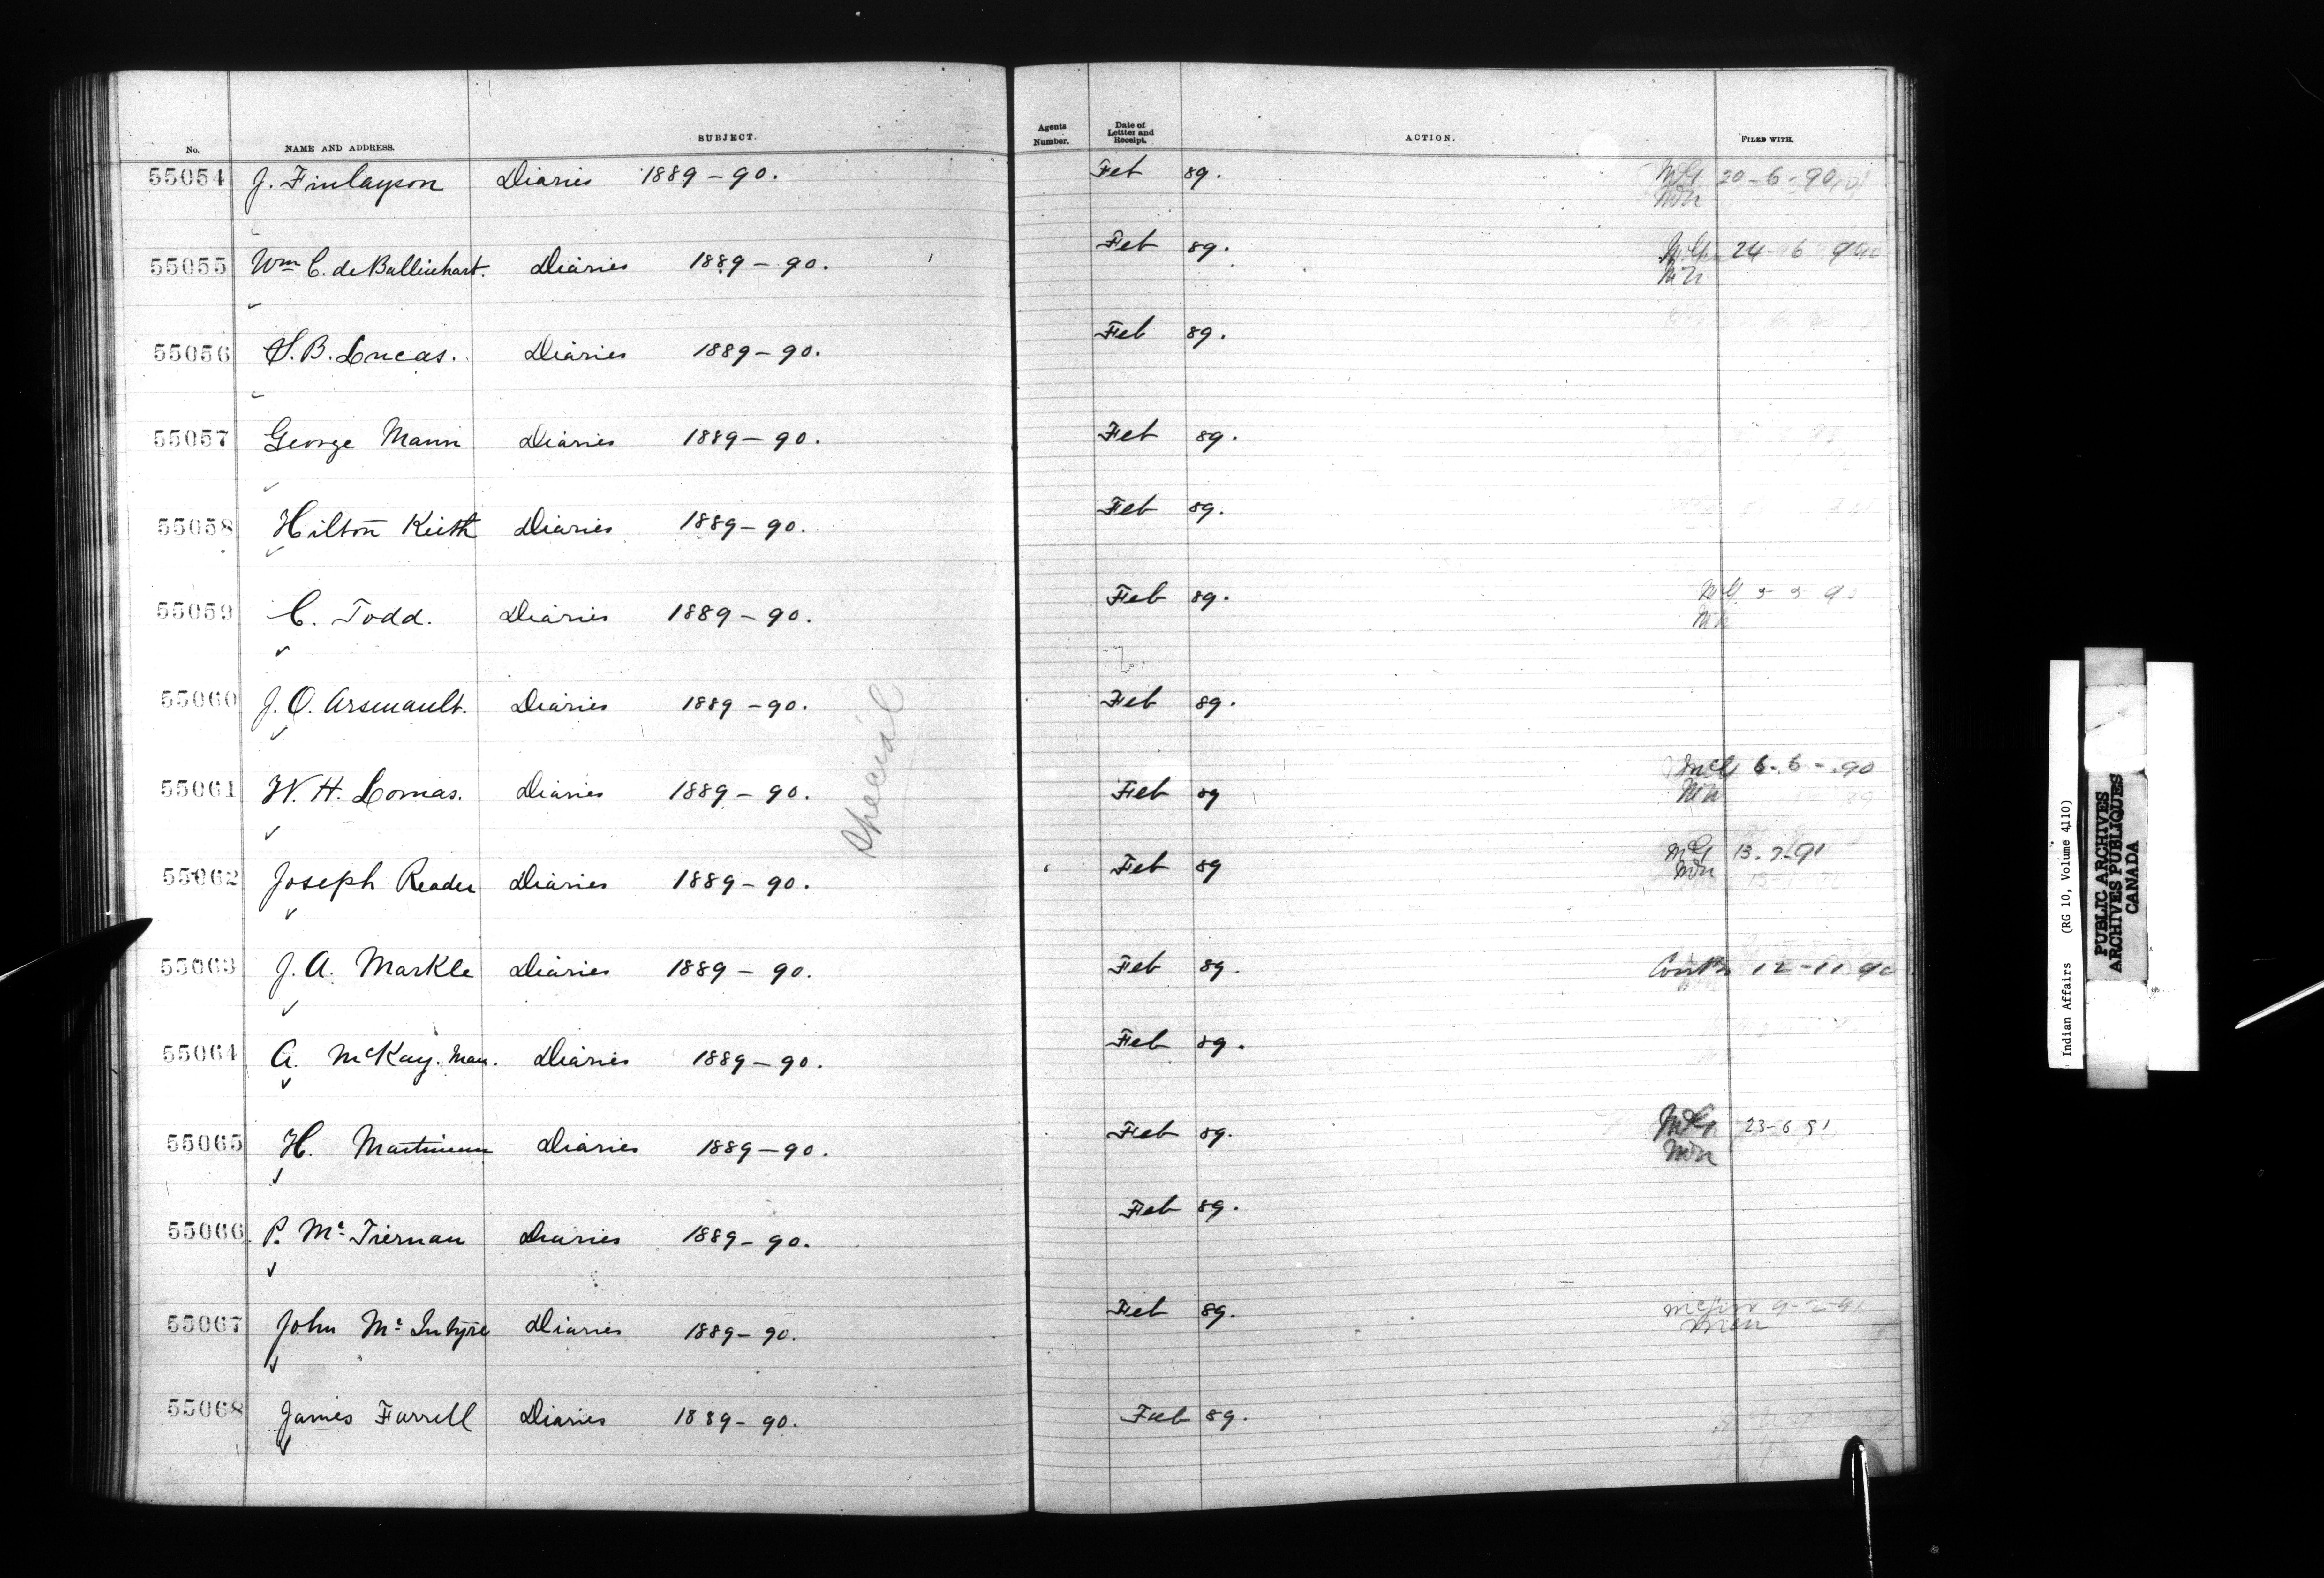 No. NAME AND ADDRESS. SUBJECT. Agents Number. Date of Letter and Receipt. ACTION. FILED WITH.
55054 J. Finlayson Diaries 1889-90. Feb 89. 20-6-90
55055 Wm C. de Ballinhart. Diaries 1889-90. Feb 89. 24-6 90
55056 S. B. Lucas. Diaries 1889-90. Feb 89.
55057 George Mann Diaries 1889-90. Feb 89.
55058 Hilton Keith Diaries 1889-90. Feb 89.
55059 C. Todd. Diaries 1889-90. Feb 89.
55060 J. O. Arsenault. Diaries 1889-90. Feb 89.
55061 W. H. Lomas. Diaries 1889-90. Feb 89 6-6-90
Special
55062 Joseph Reader Diaries 1889-90. Feb 89
55063 J. A. Markle Diaries 1889-90. Feb 89. 12-11 90
55064 A. McKay. Man. Diaries 1889-90. Feb 89.
55065 H. Martineau Diaries 1889-90. Feb 89. 23-6 91
55066 P. Mc Tiernan Diaries 1889-90. Feb 89.
55067 John Mc Intyre Diaries 1889-90. Feb 89. 9-2-91
55068 James Farrell Diaries 1889-90. Feb 89.
Indian Affairs (RG 10, Volume 4110)
PUBLIC ARCHIVES
ARCHIVES PUBLIQUES
CANADA